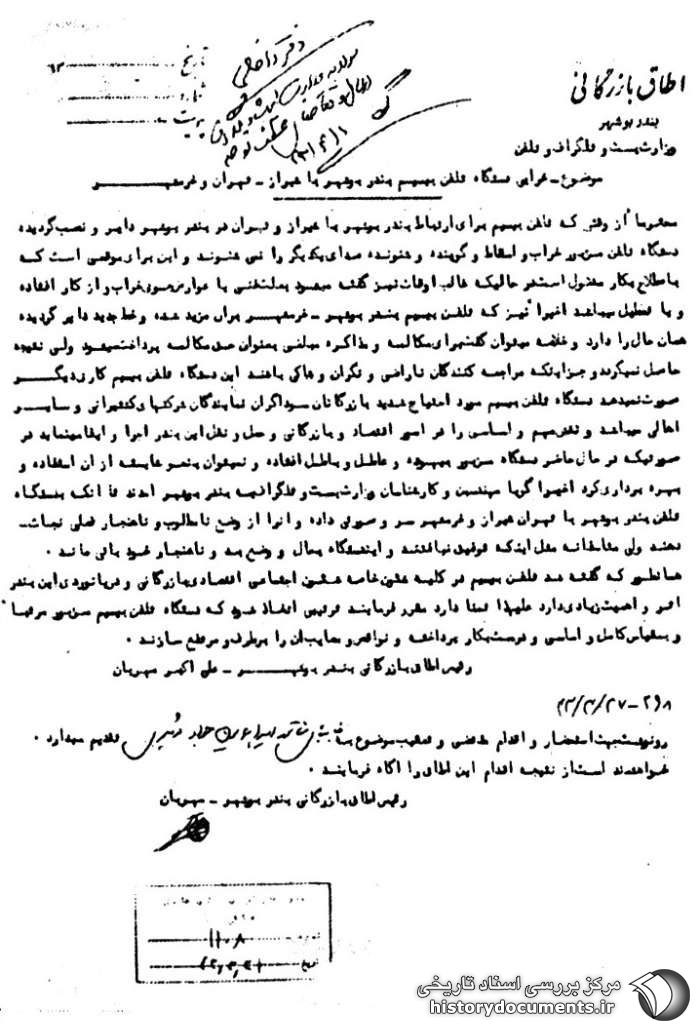 اطاق بازرگانی
بندر بوشهر
وزارت پست و تلگراف و تلفن
تاریخ ۴۳
شماره
پیوست
دفتر داخلی
موضوع - خرابی دستگاه تلفن بیسیم بندر بوشهر با شیراز - تهران و خرمشهر
محترماً از وقتی که تلفن بیسیم برای ارتباط بندر بوشهر با شیراز و تهران در بندر بوشهر دایر و نصب گردیده
دستگاه تلفن مزبور خراب و اسقاط و گوینده و شنونده صدای یکدیگر را نمی شنوند و این برای موقعی است که
باصطلاح بکار مشغول است در حالیکه غالب اوقات نیز گفته میشود بعلت فنی یا عوارض جوی خراب و از کار افتاده
و یا تعطیل میباشد اخیراً نیز که تلفن بیسیم بندر بوشهر - خرمشهر بر آن مزید شده و خط جدید دایر گردیده
همان حال را دارد و خلاصه میتوان گفت برای مکالمه و مذاکره مبلغی بعنوان حق مکالمه پرداخت میشود ولی نتیجه
حاصل نمیگردد و جز اینکه مراجعه کنندگان ناراضی و نگران و شاکی باشند این دستگاه تلفن بیسیم کاری دیگر
صورت نمیدهد دستگاه تلفن بیسیم مورد احتیاج شدید بازرگانان سوداگران نمایندگان شرکتهای کشتیرانی و سایر
اهالی میباشد و نقش مهم و اساسی را در امور اقتصاد و بازرگانی و حمل و نقل این بندر اجرا و ایفا مینماید در
صورتیکه در حال حاضر دستگاه مزبور بیهوده و عاطل و باطل افتاده و نمیتوان بنحو شایسته از آن استفاده و
بهره برداری کرد اخیراً گویا مهندسین و کارشناسان وزارت پست و تلگراف به بندر بوشهر آمدند تا آنکه بدستگاه
تلفن بندر بوشهر با تهران شیراز و خرمشهر سر و صورتی داده و آنرا از وضع نامطلوب و ناهنجار فعلی نجات -
دهند ولی متاسفانه مثل اینکه توفیق نیافتند و ایندستگاه بحال و وضع بد و ناهنجار خود باقی ماند .
همانطور که گفته شد تلفن بیسیم در کلیه شئون خاصه شئون اجتماعی اقتصادی بازرگانی و دریانوردی این بندر
اثر و اهمیت زیادی دارد علیهذا تمنا دارد مقرر فرمایند ترتیبی اتخاذ شود که دستگاه تلفن بیسیم مزبور مرتباً
و بمقیاس کامل و اساسی و درست بکار پرداخته و نواقص و معایب آن را برطرف و مرتفع سازند .
رئیس اطاق بازرگانی بندر بوشهر - علی اکبر مهربان
۲۹۸ - ۴۳/۳/۲۷
رونوشت جهت استحضار و اقدام مقتضی و تعقیب موضوع به جناب تقدیم میدارد .
خواهشمند است از نتیجه اقدام این اطاق را آگاه فرمایند .
رئیس اطاق بازرگانی بندر بوشهر - مهربان
۱۱۰۸
مرکز بررسی اسناد تاریخی
historydocuments.ir